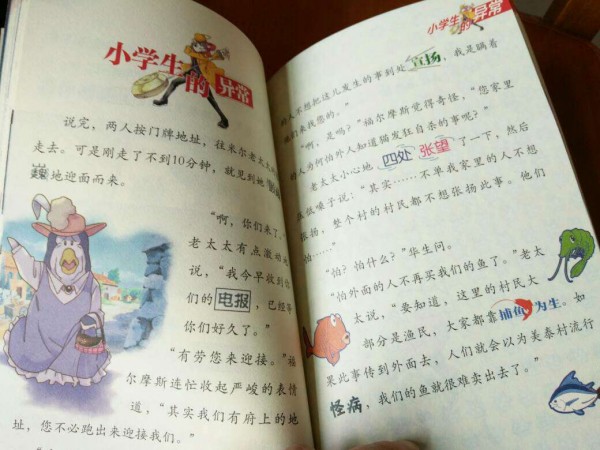 小学生
的异常
说完，两人按门牌地址，往米尔老太太
走去。可是刚走了不到10分钟，就见到她
巍地迎面而来。
“啊，你们来了。
老太太有点激动
说，“我今早收到你
们的电报，已经等
你们好久了。”
“有劳您来迎接。”福
尔摩斯连忙收起严峻的表情
道，“其实我们有府上的地
址，您不必跑出来迎接我们。”
小学生
的异常
人不想把这儿发生的事到处宣扬，我是瞒着
们来找您的。”
“啊，是吗？”福尔摩斯觉得奇怪，“您家里
人为何怕外人知道猫发狂自杀的事呢？”
老太太小心地四处张望了一下，然后
低嗓子说：“其实……不单我家里的人不想
张扬，整个村的村民都不想张扬此事。他们
怕……”
“怕？怕什么？”华生问。
“怕外面的人不再买我们的鱼了。”老太
太说，“要知道，这里的村民大
部分是渔民，大家都靠捕鱼为生。如
果此事传到外面去，人们就会以为美泰村流行
怪病，我们的鱼就很难卖出去了。”